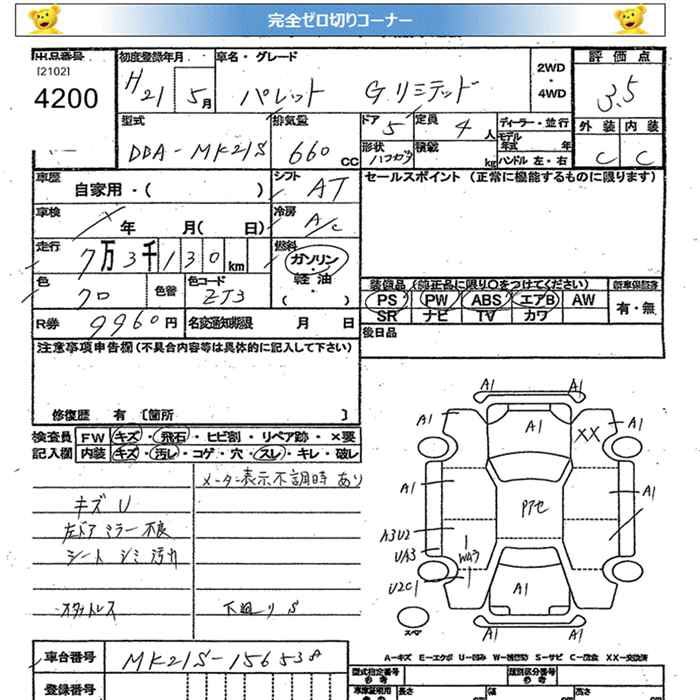 完全ゼロ切りコーナー
出品番号 初度登録年月 車名・グレード 評価点
[2102]
4200 H21 5月 パレット Gリミテッド 2WD・4WD 3.5
型式 排気量 ドア 定員 ディーラー・並行 外装 内装
DDA-MK21S 660cc 5 4人 モデル年式 年 C C
形状 積載 kg ハンドル 左・右
車歴 自家用・( ) シフト AT セールスポイント (正常に機能するものに限ります)
車検 年 月( 日) 冷房 A/C
走行 7万3千130km 燃料 ガソリン・軽油・( )
色 クロ 色替 色コード ZJ3 装備品 (純正品に限り○をつけてください) 新車保証書
PS PW ABS エアB AW 有・無
SR ナビ TV カワ
R券 9960円 名変通知期限 月 日 後日品
注意事項申告欄(不具合内容等は具体的に記入して下さい)
修復歴 有 〔箇所 〕
検査員 FW キズ・飛石・ヒビ割・リペア跡・×要
記入欄 内装 キズ・汚レ・コゲ・穴・スレ・キレ・破レ
メーター表示不調時あり
キズU
左ドアミラー不良
シート シミ 汚れ
スタットレス 下廻りS
A1 A1
A1 A1 XX A1
A1 Pアセ A1
A3U2
UA3 WA3
U2C1 A1
スペア
A1 A1
A-キズ E-エクボ U-凹み W-補修跡 S-サビ C-腐食 XX-交換済
車台番号
登録番号
型式指定番号 参考 類別区分番号 参考
長さ cm 幅 cm 高さ cm